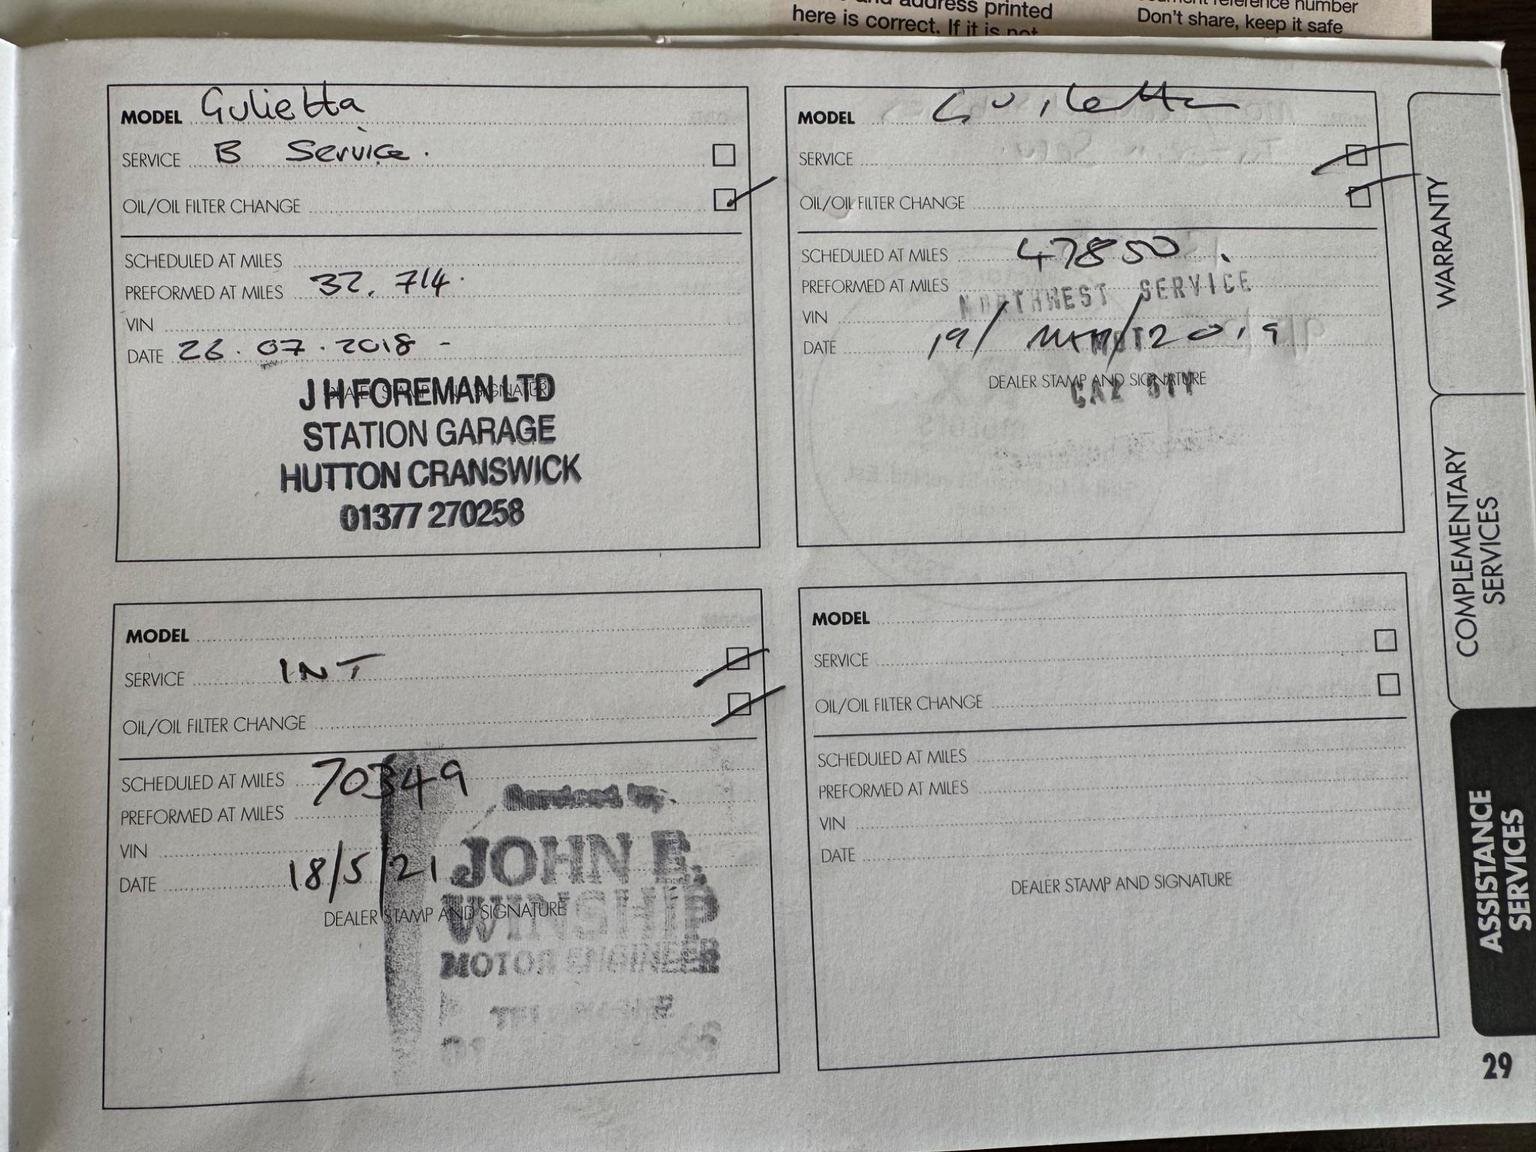 address printed
here is correct. If it is not
reference number
Don't share, keep it safe
MODEL Gulietta
SERVICE B Service.
OIL/OIL FILTER CHANGE
SCHEDULED AT MILES
PREFORMED AT MILES 32,714.
VIN
DATE 26.07.2018 -
DEALER STAMP AND SIGNATURE
J H FOREMAN LTD
STATION GARAGE
HUTTON CRANSWICK
01377 270258
MODEL Guiletta
SERVICE
OIL/OIL FILTER CHANGE
SCHEDULED AT MILES 47850.
PREFORMED AT MILES
NORTHWEST SERVICE
VIN
DATE 19/ MAR/2019
DEALER STAMP AND SIGNATURE
MODEL
SERVICE INT
OIL/OIL FILTER CHANGE
SCHEDULED AT MILES 70349
PREFORMED AT MILES
VIN
DATE 18/5/21
DEALER STAMP AND SIGNATURE
Serviced by
JOHN E.
WINSHIP
MOTOR ENGINEER
TELEPHONE
MODEL
SERVICE
OIL/OIL FILTER CHANGE
SCHEDULED AT MILES
PREFORMED AT MILES
VIN
DATE
DEALER STAMP AND SIGNATURE
WARRANTY
COMPLEMENTARY
SERVICES
ASSISTANCE
SERVICES
29